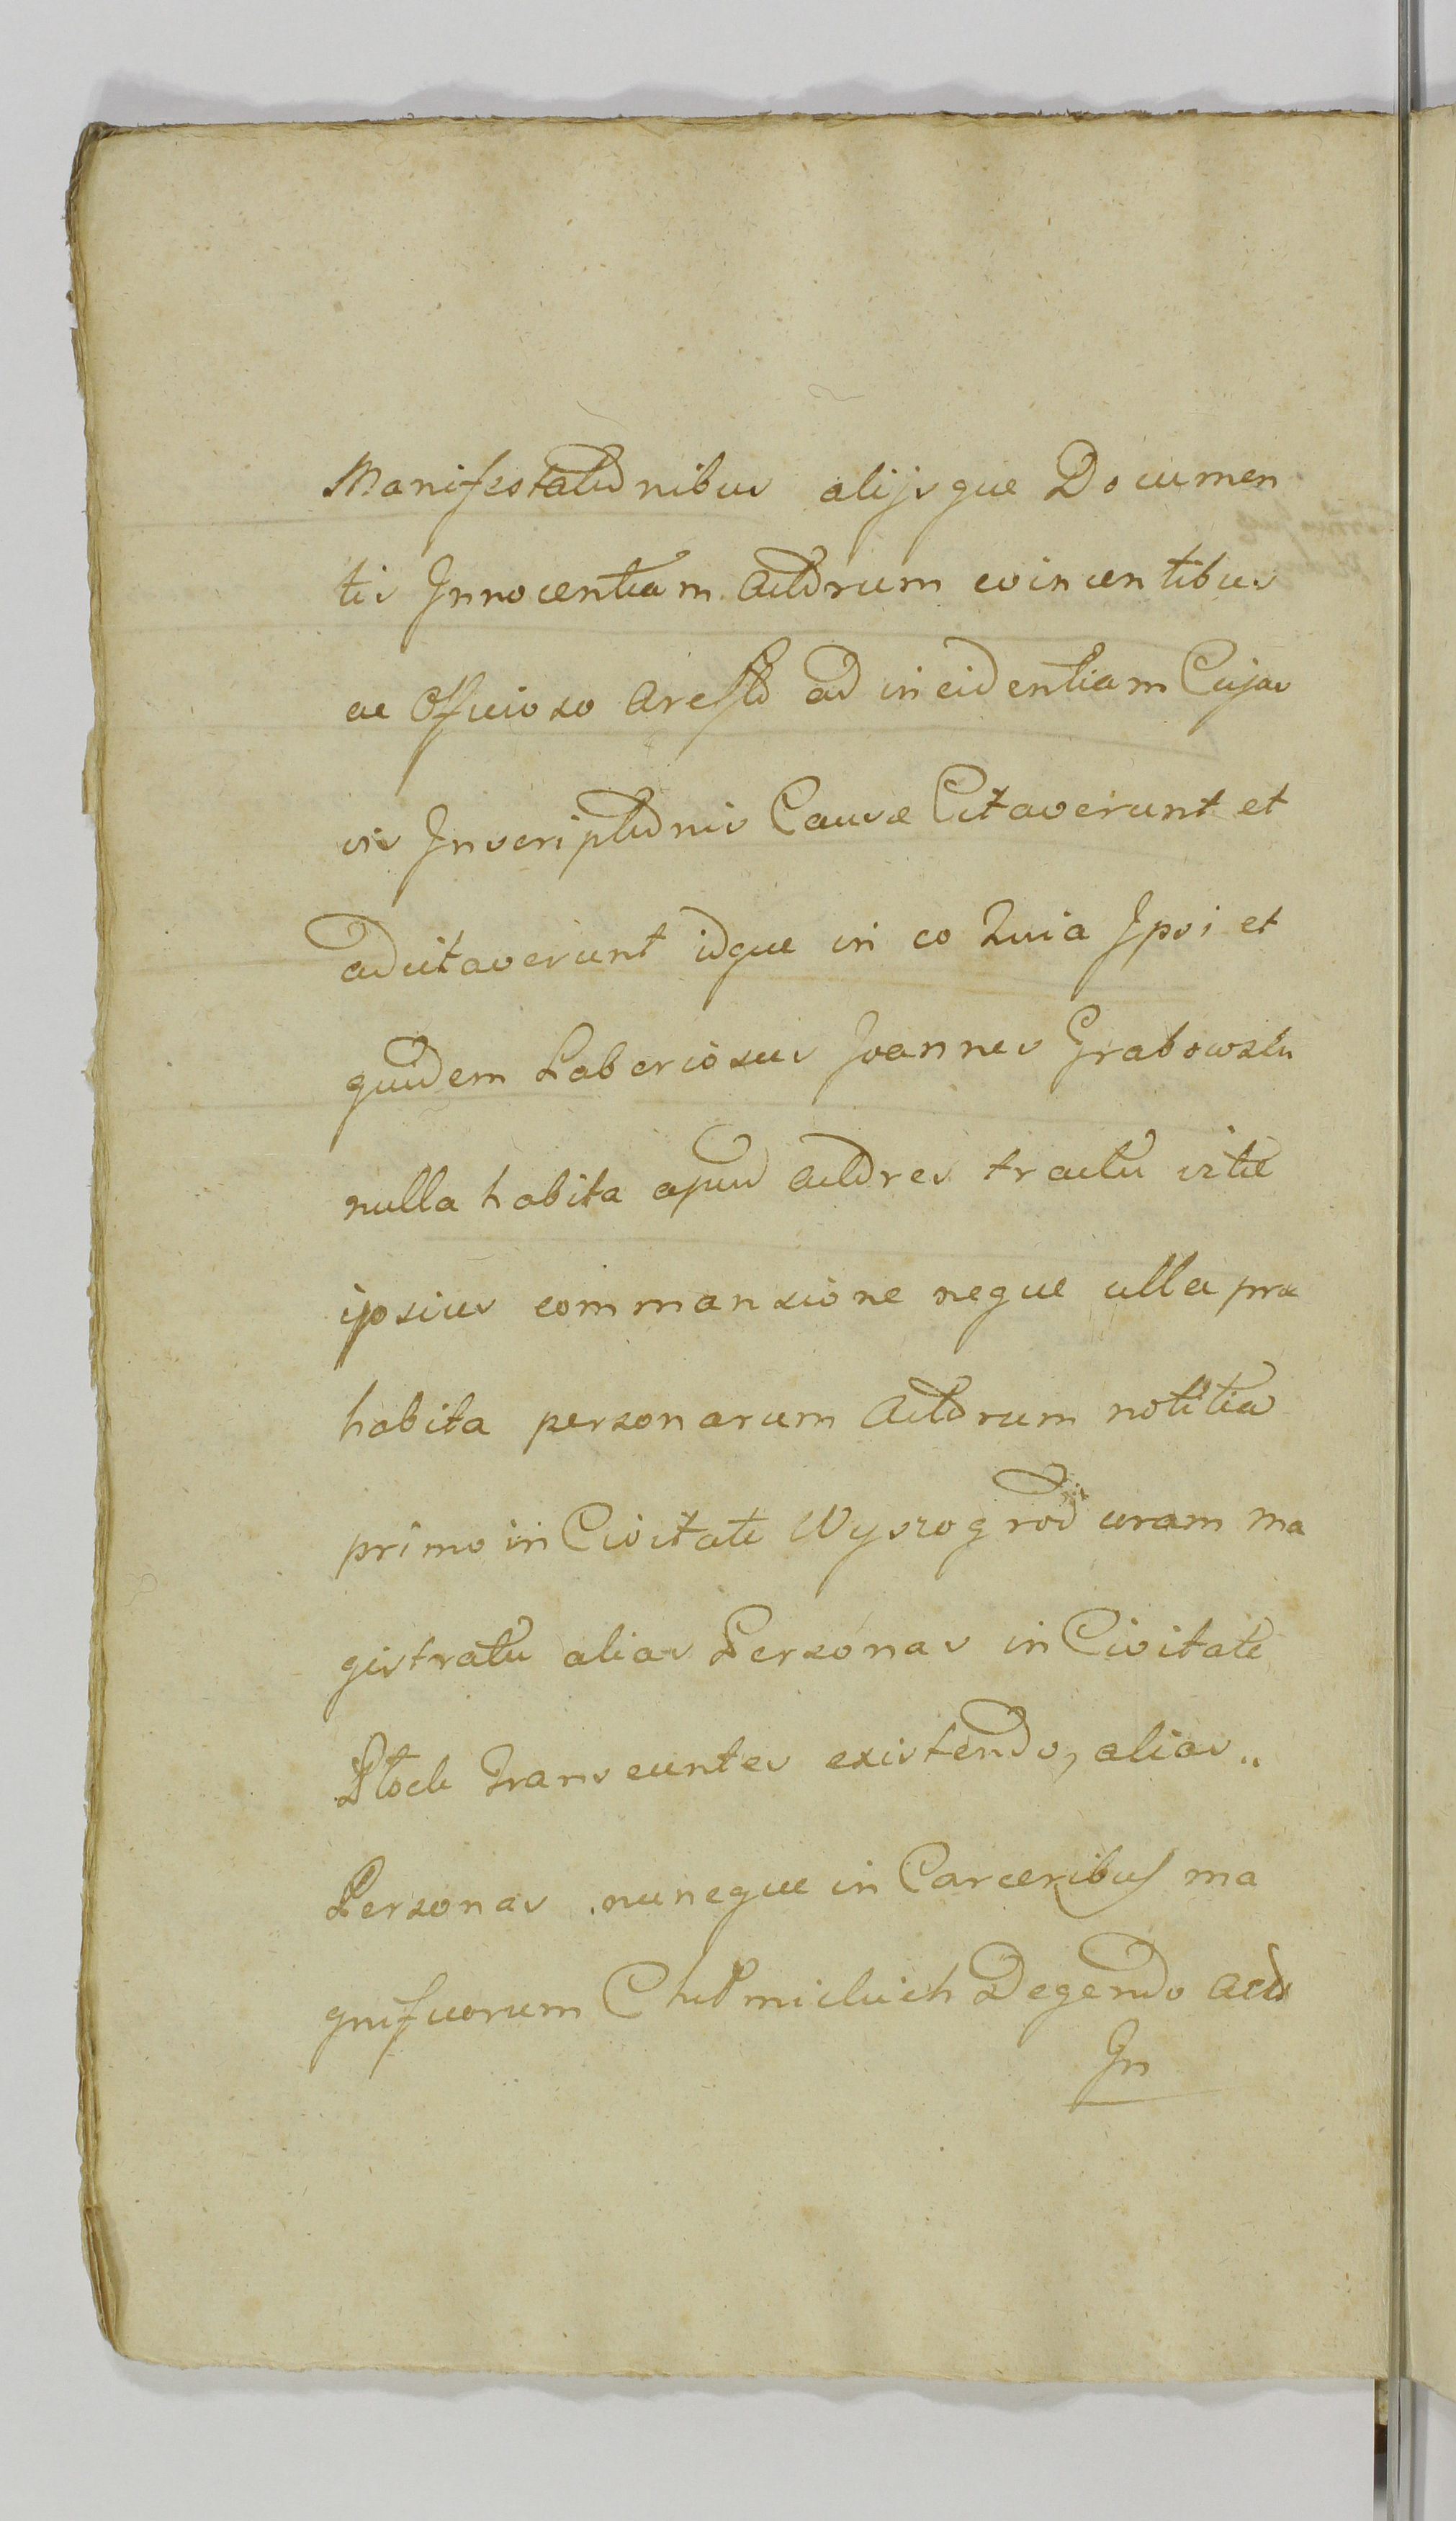 Manifestationibus alijsque Documen
tis Innocentiam Actorum evincentibus
ac Officioso Aresto ad incidentiam Cujav
vis Inscriptionis Causæ Citaverunt et
adcitaverunt idque in eo Quia Ipsi et
quidem Laboriosus Joannes Grabowski
nulla habita apud Actores tractu vitæ
ipsius commansione neque ulla præ
habita personarum Actorum notitia
primo in Civitate Wyszogrod coram Ma
gistratu alias Personas in Civitate
Płock Transeuntes existendo, alias
Personas nuncque in Carceribus ma
gnificorum Degendo Acto
In